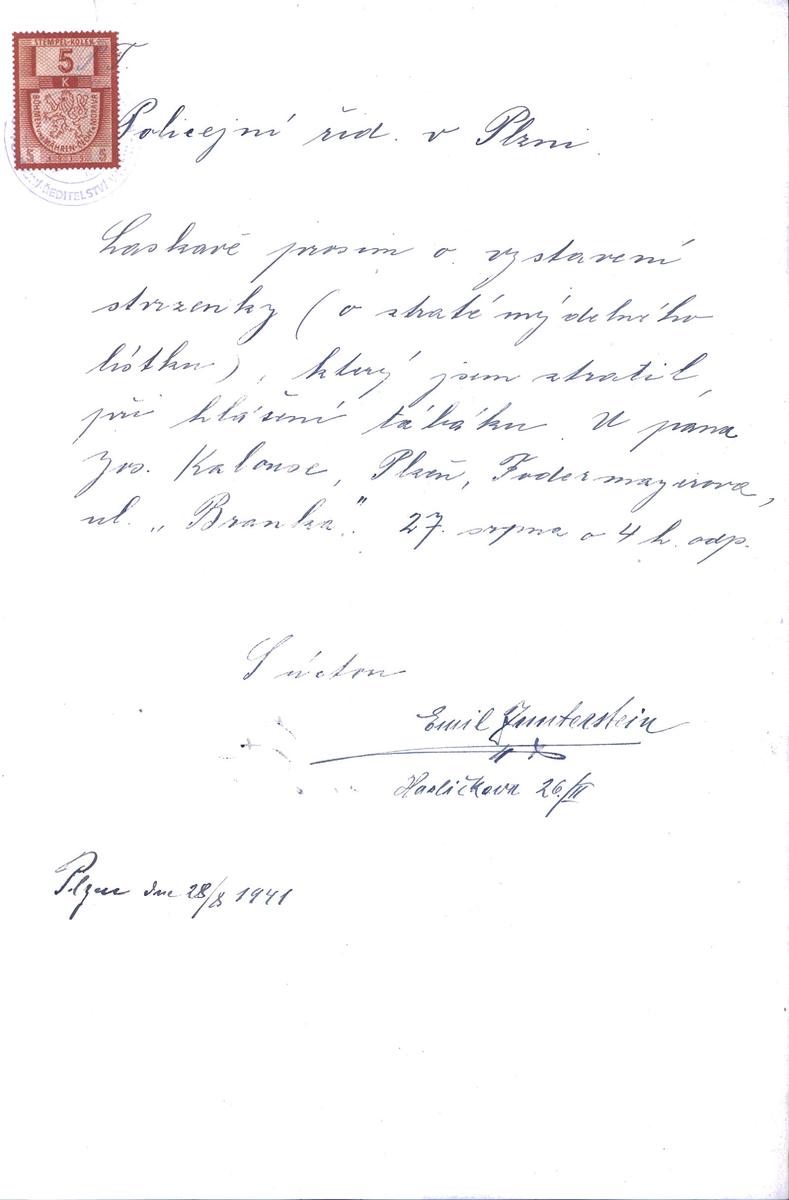 STEMPEL-KOLEK
5
K
BÖHMEN u. MÄHREN-ČECHY a MORAVA
5 5
ŘEDITELSTVÍ
P.T.
Policejní řid. v Plzni.
Laskavě prosím o vystavení
stvrzenky (o ztratě mýdelného
lístku), který jsem ztratil,
při hlášení tabáku. U pána
Jos. Kalouse, Plzeň, Fodermayerova,
ul. „Branka". 27. srpna o 4 h. odp.
S úctou
Emil Gunterstein
Havlíčkova 26./II
Plzeň dne 28/8 1941